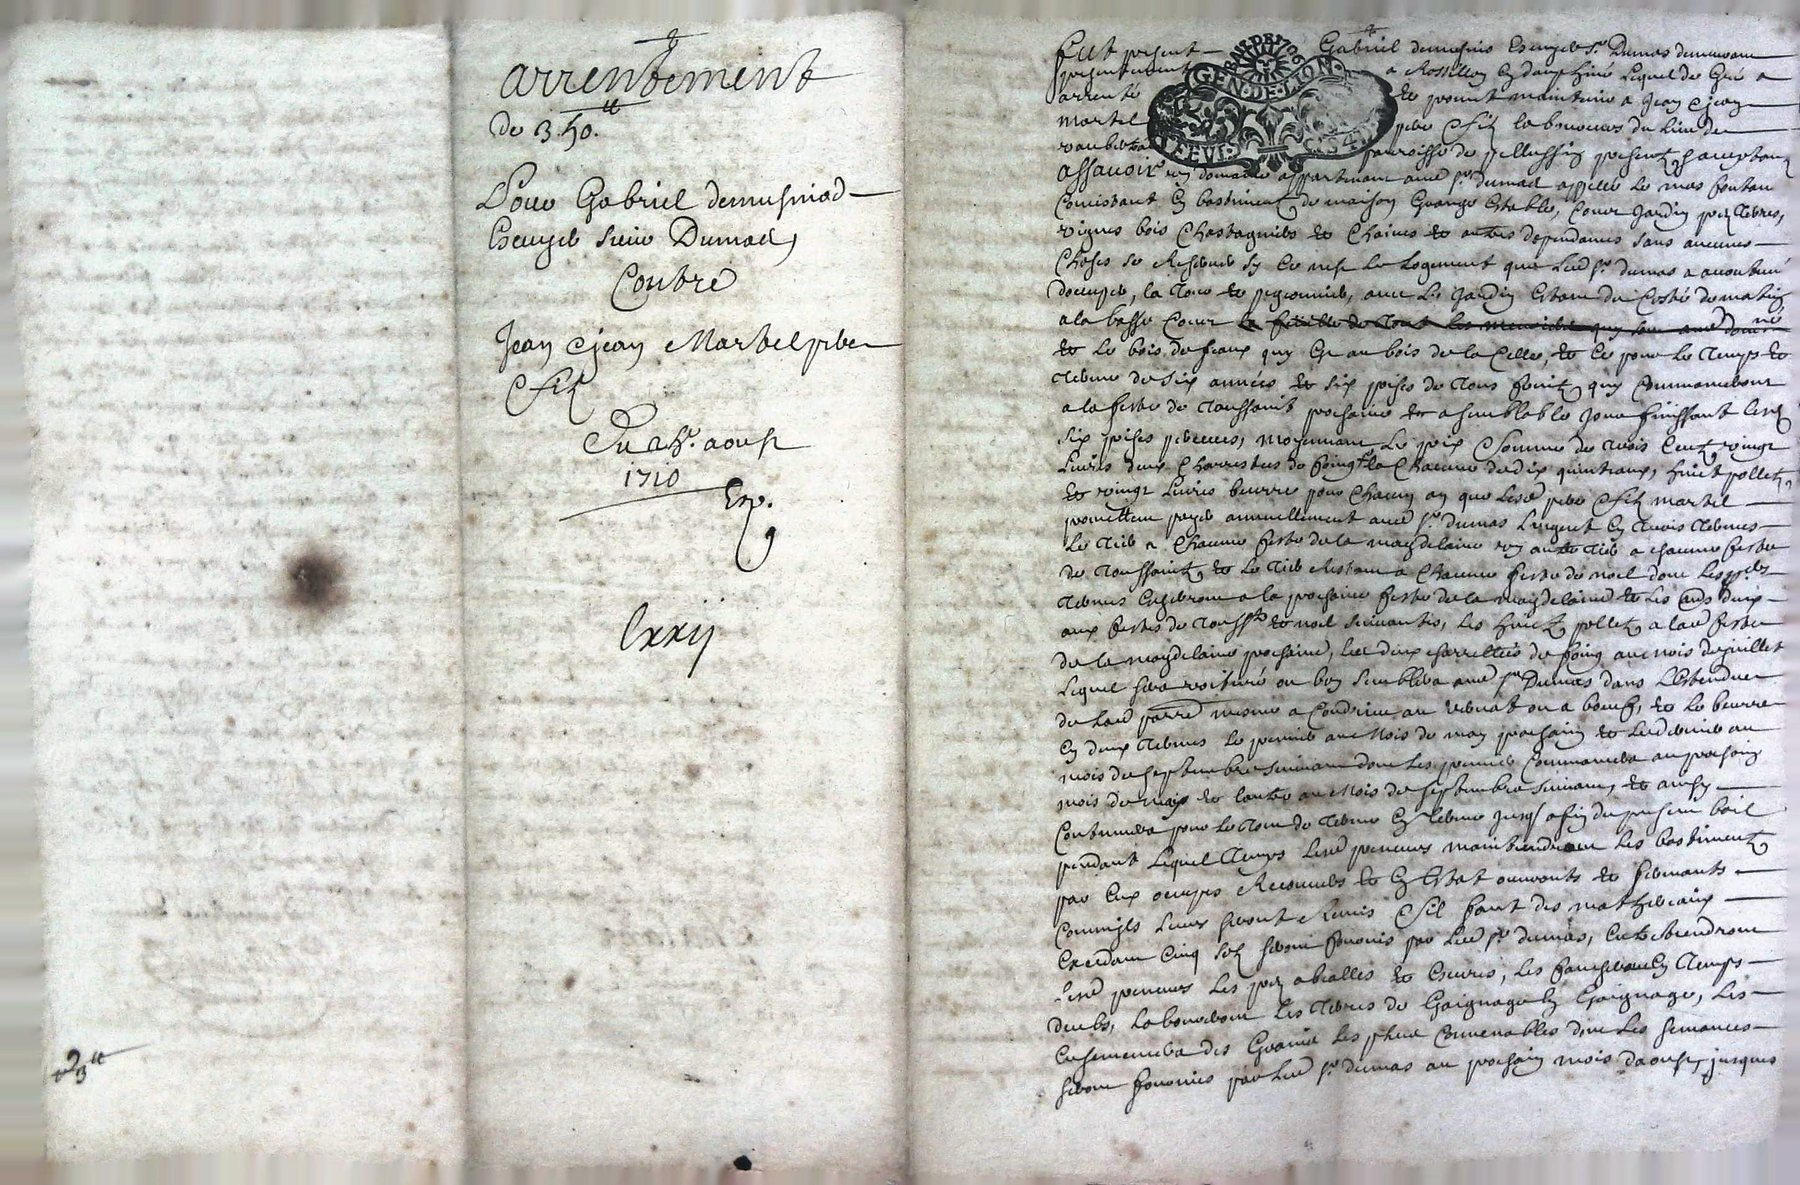 arrentement
de 350.tt
Pour Gabriel demusniod
Escuyer sieur Dumas,
Contre
Jean et jean Martel pere
et filz
Du aoust
1710
Exp.
Cxxij
3tt
GEN·DE·LION·
Fut present Gabriel Escuyer sr. Dumas demeurant
presentement a Rossillon en dauphiné lequel de Gré a
arrenté et promet maintenir a Jean et jean
Martel pere et filz laboureurs du lieu de
parroisse de pellussin presentz et acceptantz
assauoir un domaine appartenant aud. sr. dumas appellé le mas
Consistant en bastiment de maison Grange Estable, Cour Jardin prez terres,
vignes bois Chastagniers et Chaines et autres dependances sans aucunes
Choses se Reserver sy ce n'est le logement que led. sr. dumas a
d'occuper, la et pigeonnier, avec le Jardin Estant du Costé de matin
a la basse Cour
et le bois de quy Est au bois de la Celle, et ce pour le temps et
terme de six années et six prises de tous fruitz quy Commanceront
a la feste de Toussaint prochaine et a semblable jour finissant lesd.
six prises perceues, moyennant le prix et somme de trois Centz vingt
Livres deux Charrettes de foing la Chacune de dix quintaux, huict polletz
et vingt Livres beurre pour Chacun an que lesd. pere et filz martel
promettent payer annuellement aud. sr. dumas l'argent en trois termes
le tier a Chacune feste de la magdelaine un autre tier a chacune feste
de Toussaintz et le tier Restant a Chacune feste de noel dont les
termes Escherront a la prochaine feste de la magdelaine et les deux
aux festes de Toussts et noel suivantes, les huict polletz a lad. feste
de la magdelaine prochaine, les deux charrettées de foing au mois de juillet
lequel sera voituré ou bon semblera aud. sr. Dumas dans l'Estendue
de lad. parre mesme a Condrieu au ou a boeuf, et le beurre
En deux termes le premier au mois de may prochain et le dernier au
mois de septembre suivant dont les premiers Commancera au prochain
mois de may et l'autre au mois de septembre suivant, et ainsy
Continuera pour le tout de terme En terme jusq. a fin du present bail
pendant lequel temps lesd. preneurs maintiendront les bastimentz
par Eux occupés Recouverts et En Estat ouvrants et fermants
Comm'ils leurs seront Remis et s'il faut des matheriaux
Excedant Cinq solz seront fournis par led. sr. dumas, Entretiendront
lesd. preneurs les prez abeallés et Escurés, les faucheront En temps
deubs, laboureront les terres de Gaignage En Gaignage, les
Ensemencera des Grains les plus Convenables dont les semances
seront fournies par led. sr. dumas au prochain mois d'aoust, jusques